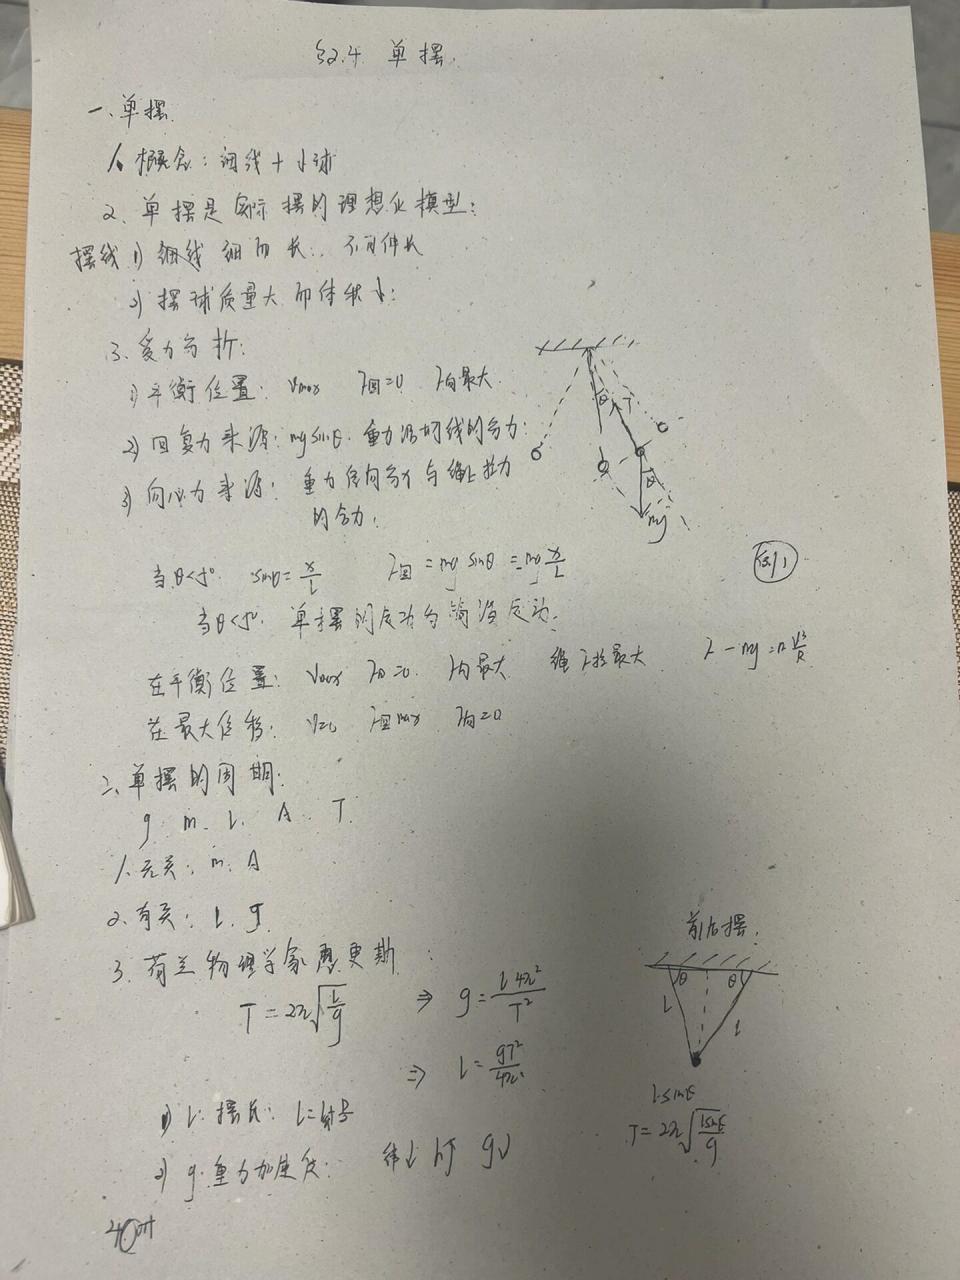 §2.4 单摆.
一、单摆
1、概念：细线+小球
2、单摆是实际摆的理想化模型：
摆线 1) 细线 细而长：不可伸长
2) 摆球质量大而体积小：
3、受力分析：
1) 平衡位置： Vmax F回=0 F向最大.
2) 回复力来源：mgsinθ. 重力沿切线的分力：
3) 向心力来源：重力径向分力与绳上拉力
的合力：
θ T
θ
mg
当θ<5° sinθ=x/L F回=mg sinθ=mg x/L
例1
当θ<5°. 单摆的运动为简谐运动.
在平衡位置： Vmax F回=0. F向最大 绳F拉最大 F-mg=m V²/R
在最大位移： V=0 F回max F向=0
二、单摆的周期：
g. m. L. A. T.
1、无关：m. A
2、有关：L. g.
3、荷兰物理学家惠更斯：
T=2π√(L/g) ⇒ g=L4π²/T²
⇒ L=gT²/4π²
1) L：摆长：L=
2) g：重力加速度： 纬↓ h↑ g↓
前后摆.
θ θ
L L
L·sinθ
T=2π√(Lsinθ/g)